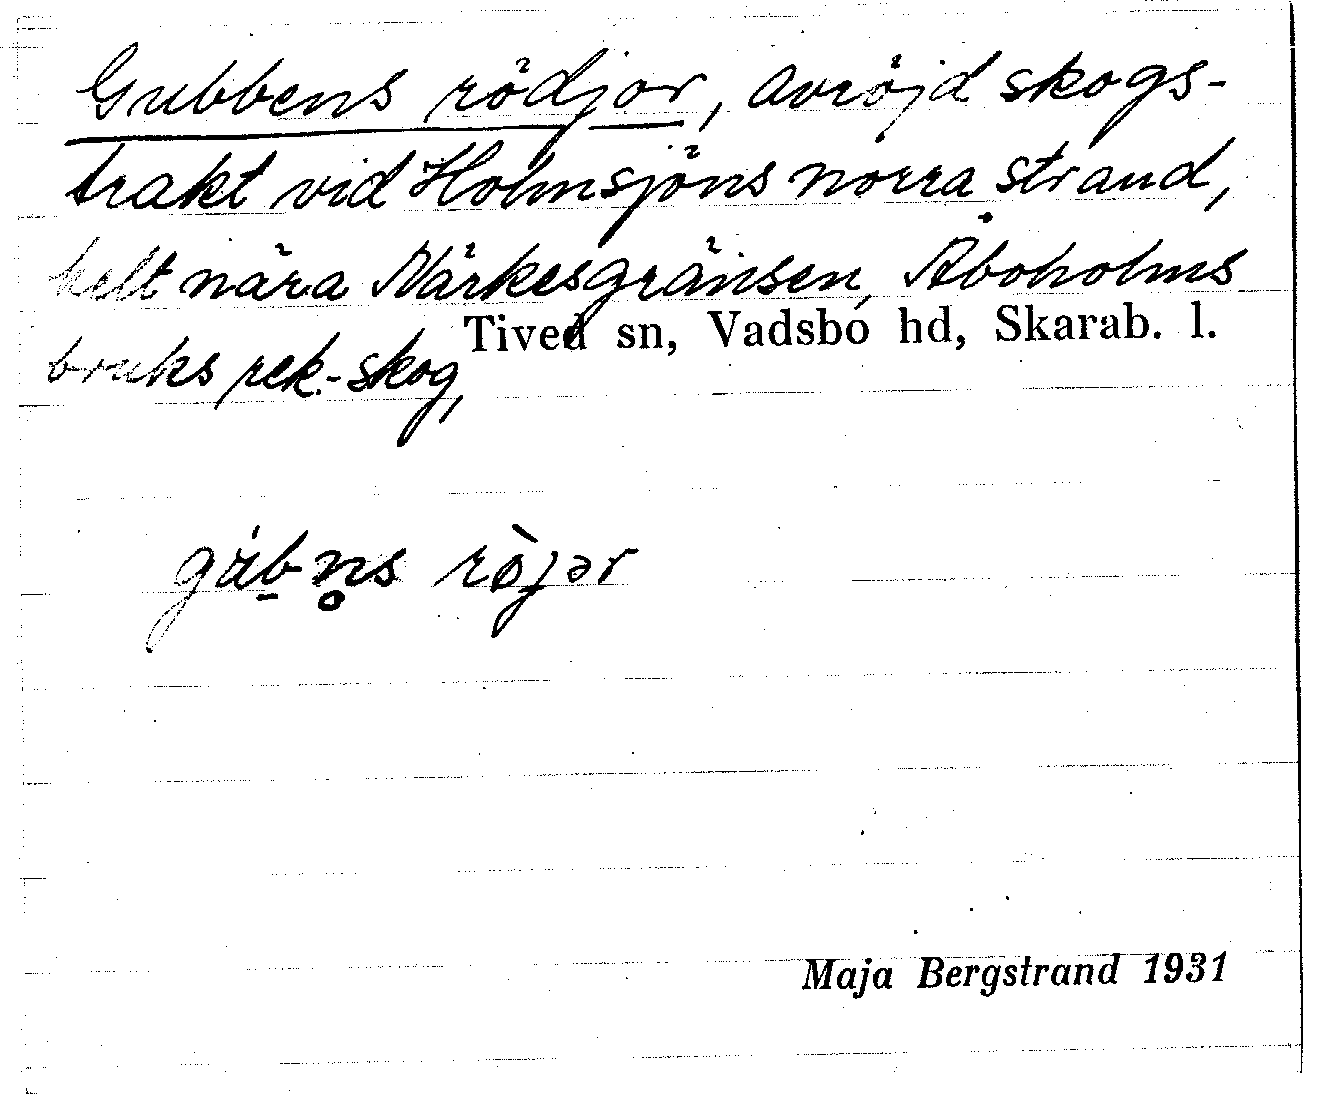 Gubbens rödjor, avröjd skogs-
trakt vid Holmsjöns norra strand,
helt nära Närkesgränsen, Åboholms
Tived sn, Vadsbo hd, Skarab. l.
bruks rek.-skog,
gúb̠n̥s rö̀jər
Maja Bergstrand 1931